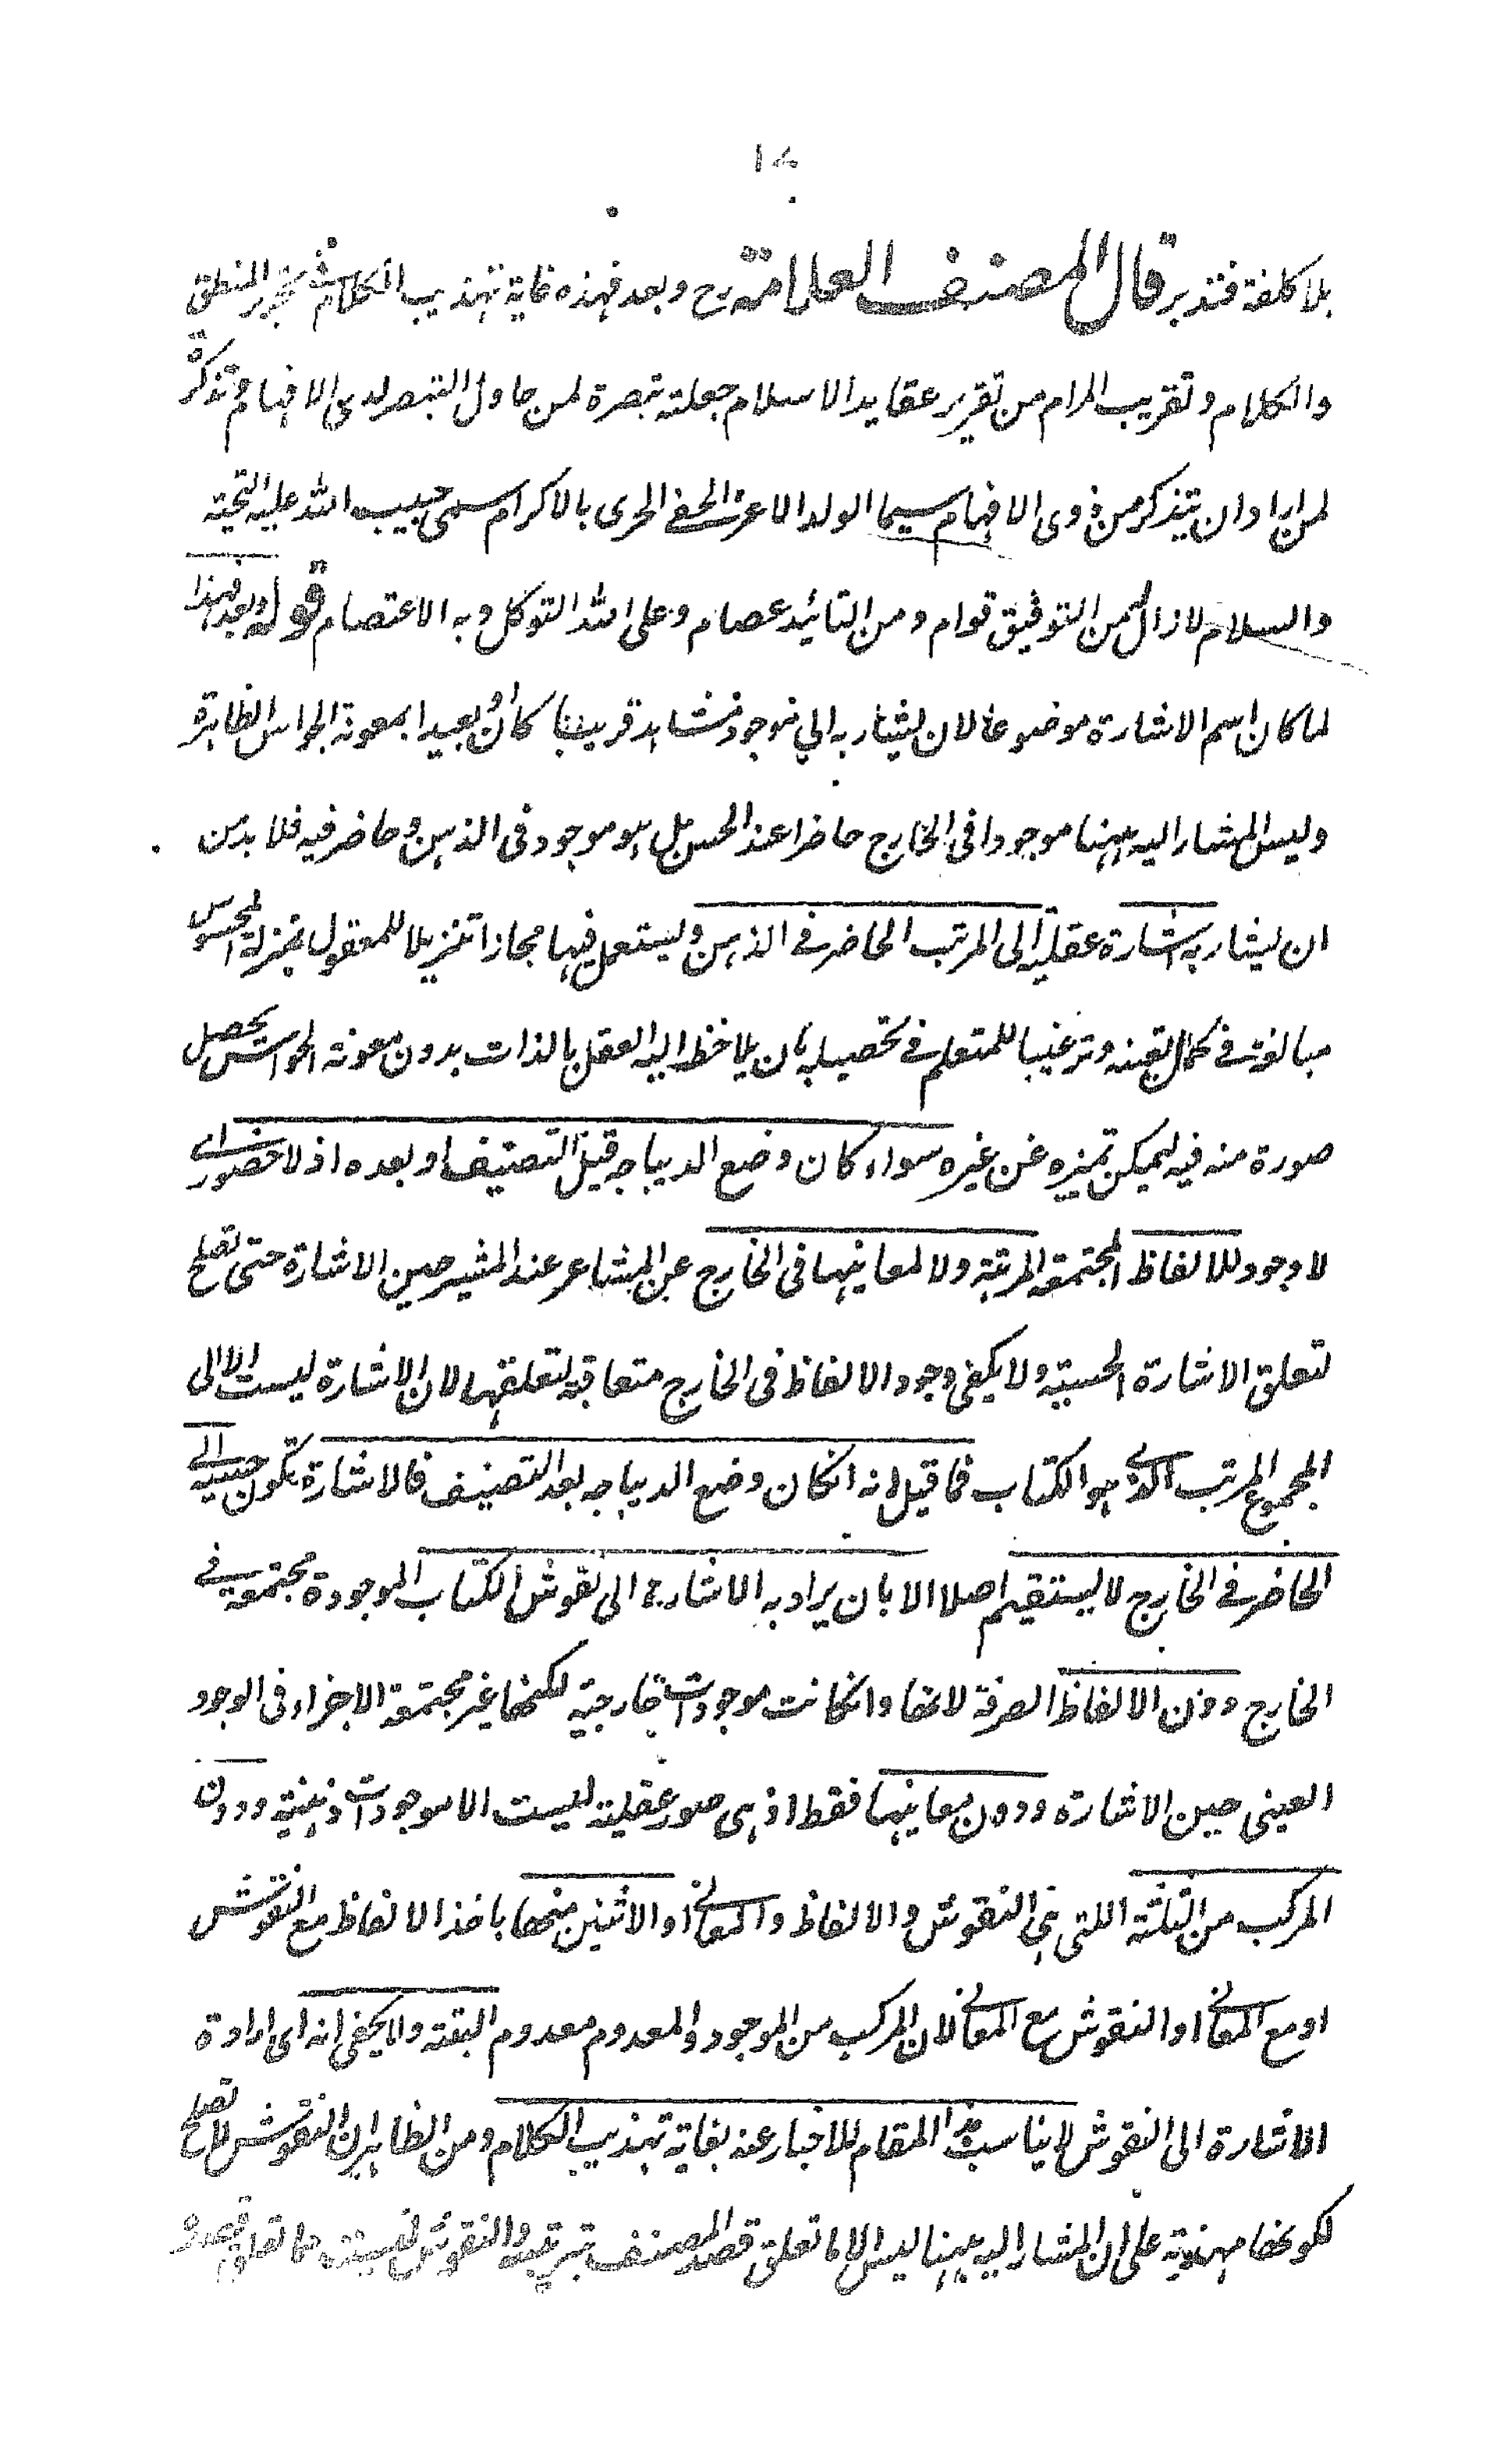 ١٤
بلا كلفة فتدبر قال المصنف العلامة رح وبعد فهذه غاية تهذيب الكلام في تحرير المنطق
والكلام وتقريب المرام من تقرير عقايد الاسلام جعلته تبصرة لمن حاول التبصر لدى الافهام وتذكرة
لمن اراد ان يتذكر من ذوى الافهام سيما الولد الاعز الحفى الحرى بالاكرام سمى حبيب الله عليه التحية
والسلام لازال له من التوفيق قوام ومن التائيد عصام وعلى الله التوكل وبه الاعتصام قوله وبعد فهذا
لما كان اسم الاشارة موضوعا لان يشار به الى موجود مشاهد قريبا كان او بعيدا بمعونة الحواس الظاهرة
وليس المشار اليه ههنا موجودا فى الخارج حاضرا عند الحس بل هو موجود فى الذهن وحاضر فيه فلا بد من
ان يشار به اشارة عقلية الى المرتب الحاضر فى الذهن ويستعمل فيها مجازا تنزيلا للمعقول بمنزلة المحسوس
مبالغة فى كمال تعينه وترغيبا للمتعلم فى تحصيله بان يلاحظ اليه العقل بالذات بدون معونة الحواس يحصل
صورة منه فيه ليمكن تميزه عن غيره سواء كان وضع الديباجه قبل التصنيف او بعده اذ لا حضور اى
لا وجود للالفاظ المجتمعة المرتبة ولا لمعانيها فى الخارج عن المشاعر عند المشير حين الاشارة حتى تصلح
لتعلق الاشارة الحسية ولا يكفى وجود الالفاظ فى الخارج متعاقبة لتعلقها لان الاشارة ليست الا الى
المجموع المرتب الذى هو الكتاب فما قيل انه انكان وضع الديباجه بعد التصنيف فالاشارة تكون حينئذ الى
الحاضر فى الخارج لا يستقيم اصلا الا بان يراد به الاشارة الى نقوش الكتاب الموجودة مجتمعة فى
الخارج دون الالفاظ الصرفة لانها وانكانت موجودات خارجية لكنها غير مجتمعة الاجزاء فى الوجود
العينى حين الاشارة ودون معانيها فقط اذ هى صور عقلية ليست الا موجودات ذهنية ودون
المركب من الثلثة اللتى هى النقوش والالفاظ والمعانى او الاثنين منها باخذ الالفاظ مع النقوش
او مع المعانى او النقوش مع المعانى لان المركب من الموجود والمعدوم معدوم البتة ولا يخفى انه اى ارادة
الاشارة الى النقوش لا يناسب المقام للاخبار عنه بغاية تهذيب الكلام ومن الظاهر ان النقوش لا تصلح
لكونها مهذبة على ان المشار اليه ههنا ليس الا ما تعلق قصد المصنف بترتيبه والنقوش ليست مما تعلق قصده